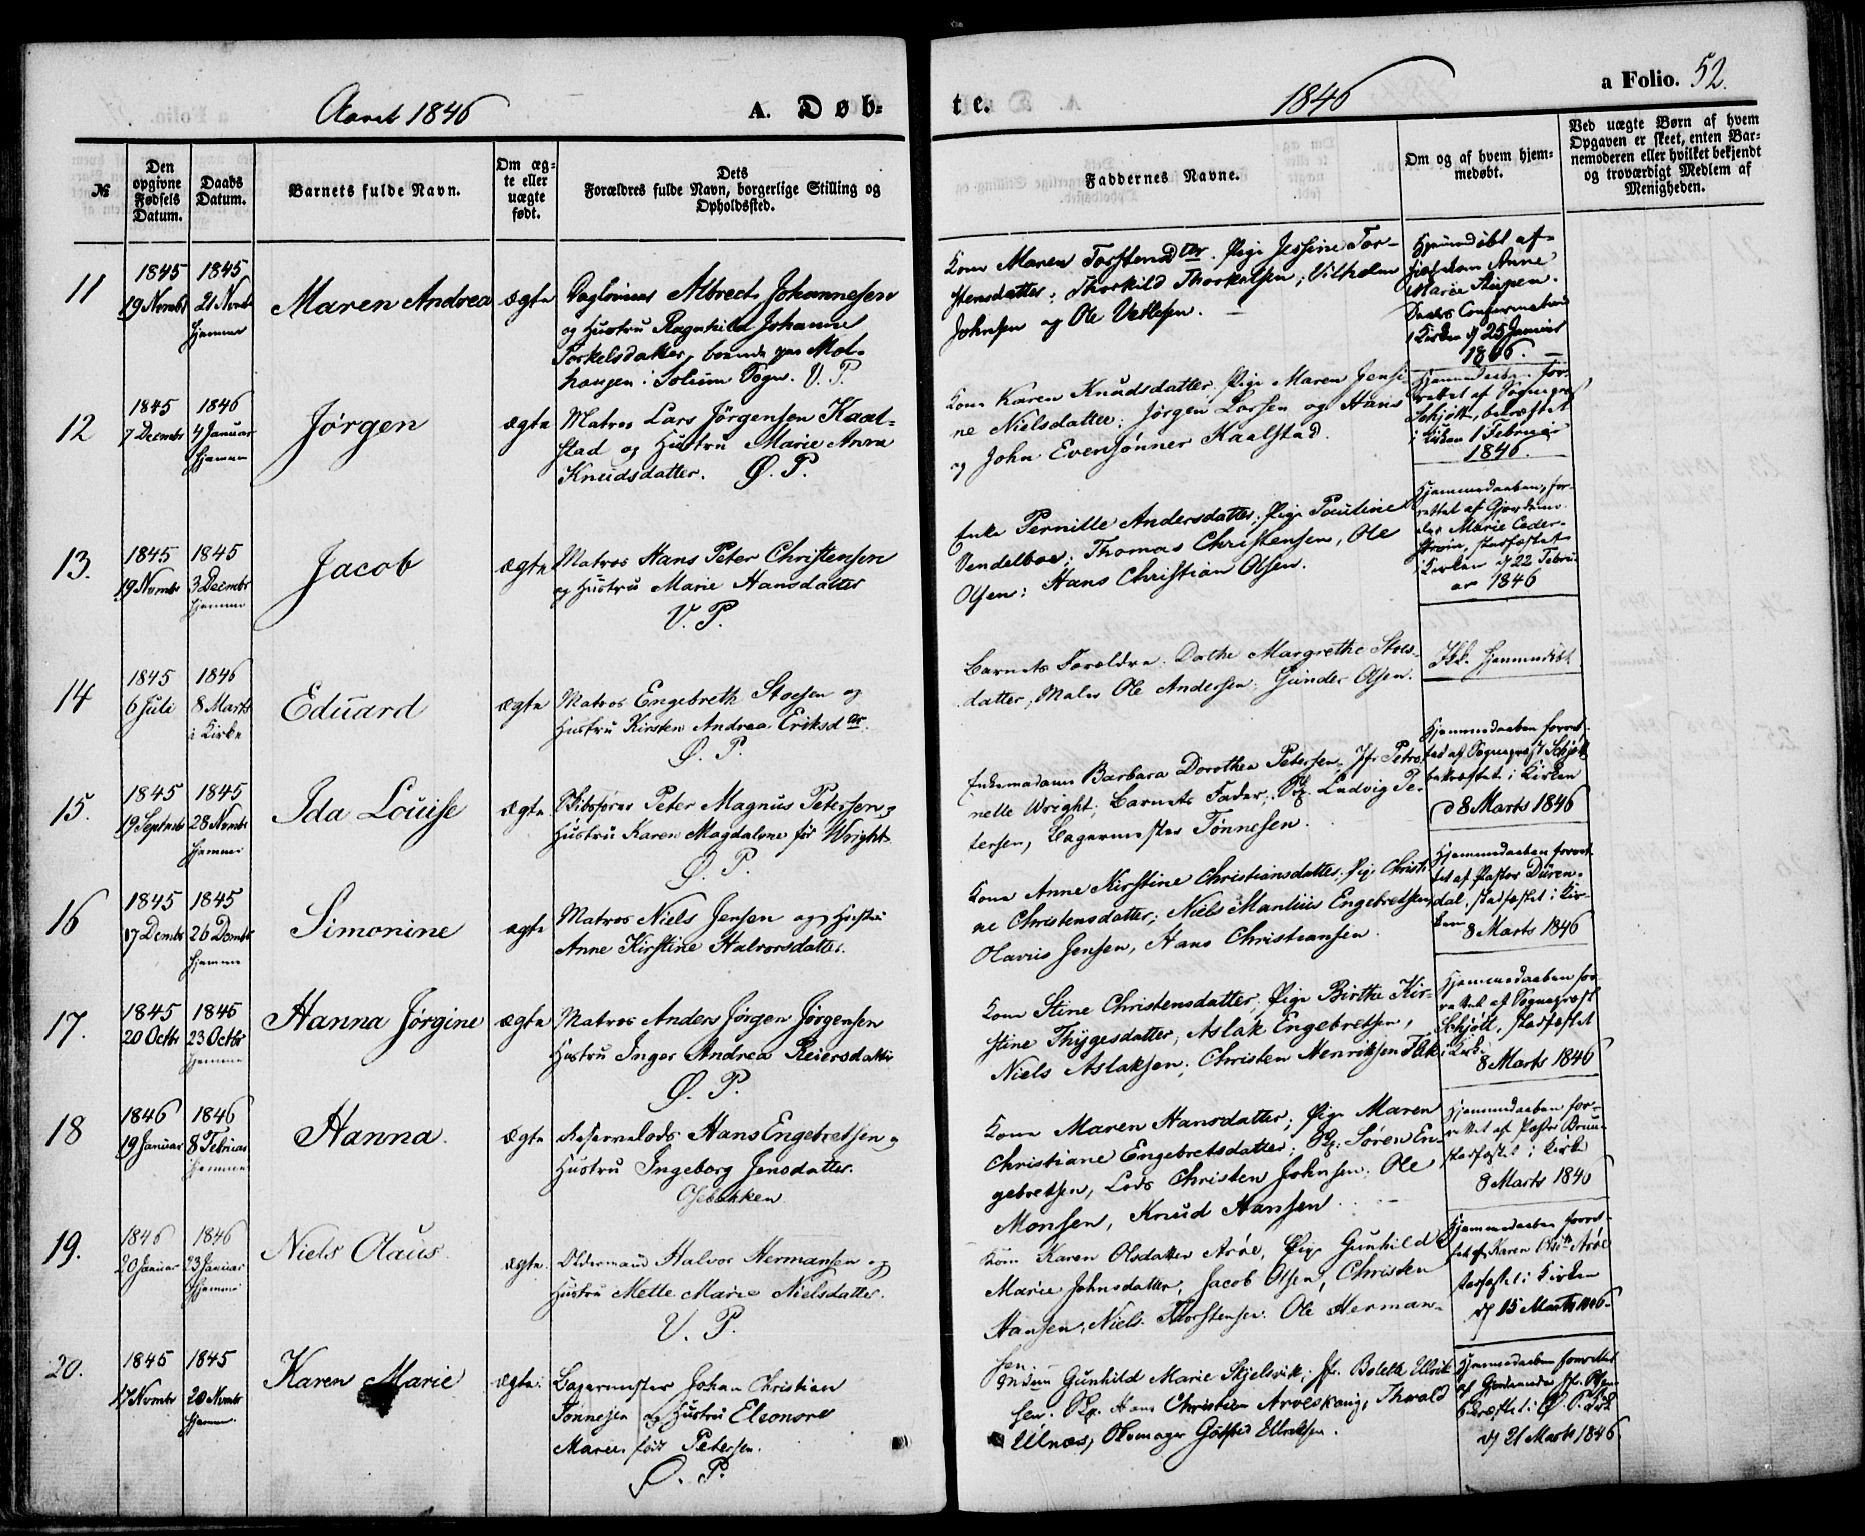 Aaret 1846
A. Døb-
te.
1846
a Folio. 52.
№
Den opgivne Fødsels Datum.
Daabs Datum.
Barnets fulde Navn.
Om ægte eller uægte født.
Dets Forældres fulde Navn, borgerlige Stilling og Opholdssted.
Faddernes Navne.
Om og af hvem hjemmedøbt.
Ved uægte Børn af hvem Opgaven er skeet, enten Barnemoderen eller hvilket bekjendt og troværdigt Medlem af Menigheden.
11
1845
19 Novmbr
1845
21 Novbr
hjemme
Maren Andrea
ægte
Albrecht Johannesen
og Hustru Ragnhild Johanne
Torkelsdatter, boende paa Mol-
haugen i Solum Sogn. V. P.
Kone Maren Torstensd ter. Pige Jessine Tor-
stensdatter; Thorkild Thorkelsen; Vilhelm
Johnsen og Ole Vetlesen.
Hjemmedøbt af
Anne
Marie
Daabs
i Kirken d 25 Januar
1846.
12
1845
7 Decmbr
1846
4 Januar
hjemme
Jørgen
ægte
Matros Lars Jørgensen Kaal-
stad og Hustru Marie Anna
Knudsdatter. Ø. P.
Kone Karen Knudsdatter, Pige Maren Jensi-
ne Nielsdatter; Jørgen Larsen og Hans
og John Evensønner Kaalstad.
Hjemmedaaben for-
rettet af Sognepræst
Schjøtt, bekræftet
i Kirken 1 Februar
1846.
13.
1845
19 Novmbr
1845
3 Decmbr
hjemme
Jacob
ægte
Matros Hans Peter Christensen
og Hustru Marie Hansdatter
V. P.
Enke Pernille Andersdatter; Pige Pauline
Vendelboe; Thomas Christensen, Ole
Olsen; Hans Christian Olsen.
Hjemmedaaben, for-
rettet af Gjordemo-
der Marie Ceder-
strøm, stadfæstet
i Kirken d 22 Febru
ar 1846
14
1845
6 Juli
1846
8 Marts
i Kirke
Eduard
ægte
Matros Engebreth Stoesen og
Hustru Kirsten Andrea Eriksd ter.
Ø. P.
Barnets Forældre: Dothe Margrethe Stoes-
datter, Maler Ole Andersen; Gunder Olsen.
Ikke hjemmedøbt
15.
1845
19 Septmbr
1845
28 Novmbr
hjemme
Ida Louise
ægte
Skibsfører Peter Magnus Petersen og
Hustru Karen Magdalene fød Wright.
Ø. P.
Enkemadame Barbara Dorothea Petersen, Jfr Petro-
nelle Wright; Barnets Fader; Ludvig Pe-
tersen, Lagermester Tønnesen.
Hjemmedaaben forret-
tet af Sognepræst Schjøtt
bekræftet i Kirken
d 8 Marts 1846
16
1845
17 Decmbr
1845
26 Decmbr
hjemme
Simonine
ægte
Matros Niels Jensen og Hustru
Anne Kirstine Halvorsdatter.
Kone Anne Kirstine Christiansdatter; Pige Christi-
ne Christensdatter; Niels Mantius Engebretsen,
Olavus Jensen, Hans Christiansen.
Hjemmedaaben forret-
tet af Pastor Düren-
dal, stadfæstet i Kir-
ken 8 Marts 1846
17.
1845
20 Octbr
1845
23 Octbr
hjemme
Hanna Jørgine
ægte
Matros Anders Jørgen Jørgensen
Hustru Inger Andrea Reiersdatter
Ø. P.
Kone Stine Christensdatter, Pige Birthe Kir-
stine Thygesdatter, Aslak Engebretsen,
Niels Aslaksen; Christen Henriksen
Hjemmedaaben for-
rettet af Sognepræst
Schjøtt, stadfæstet
i Kirk.
8 Marts 1846
18
1846
19 Januar
1846
8 Februar
hjemme
Hanna.
ægte
Reservelods Hans Engebretsen og
Hustru Ingeborg Jensdatter.
Osebakken
Kone Maren Hansdatter; Pige Maren
Christiane Engebretsdatter; Søren En-
gebretsen, Lods Christen Johnsen; Ole
Monsen, Knud Hansen.
Hjemmedaaben for-
rettet af Pastor Bruun
stadfæstet i Kirke
8 Marts 1846
19.
1846
20 Januar
1846
23 Januar
hjemme
Niels Olaus.
ægte.
Oldermand Halvor Hermansen og
Hustru Mette Marie Nielsdatter.
V. P.
Kone Karen Olsdatter Arøe, Pige Gunhild
Marie Johnsdatter, Jacob Olsen, Christen
Hansen, Niels Thorstensen. Ole Herman-
sen
Hjemmedaaben forret-
tet af Karen Arøe
stadfæstet i Kirken
d 15 Marts 1846
20.
1845
17 Novmbr
1845
20 Novmbr
hjemme.
Karen Marie
ægte.
Lagermester Johan Christian
Tønnesen og Hustru Eleonore
Marie, født Petersen.
Ø. P.
Gunhild Marie Skjelsvik; Jfr. Bolette Ellrik-
sen. Hans Christian Thorvald
Ulnæs,
Hjemmedaaben forrettet
af Gjordemoder
bekræftet i Ø. P. Kirke
d 21 Marts 1846